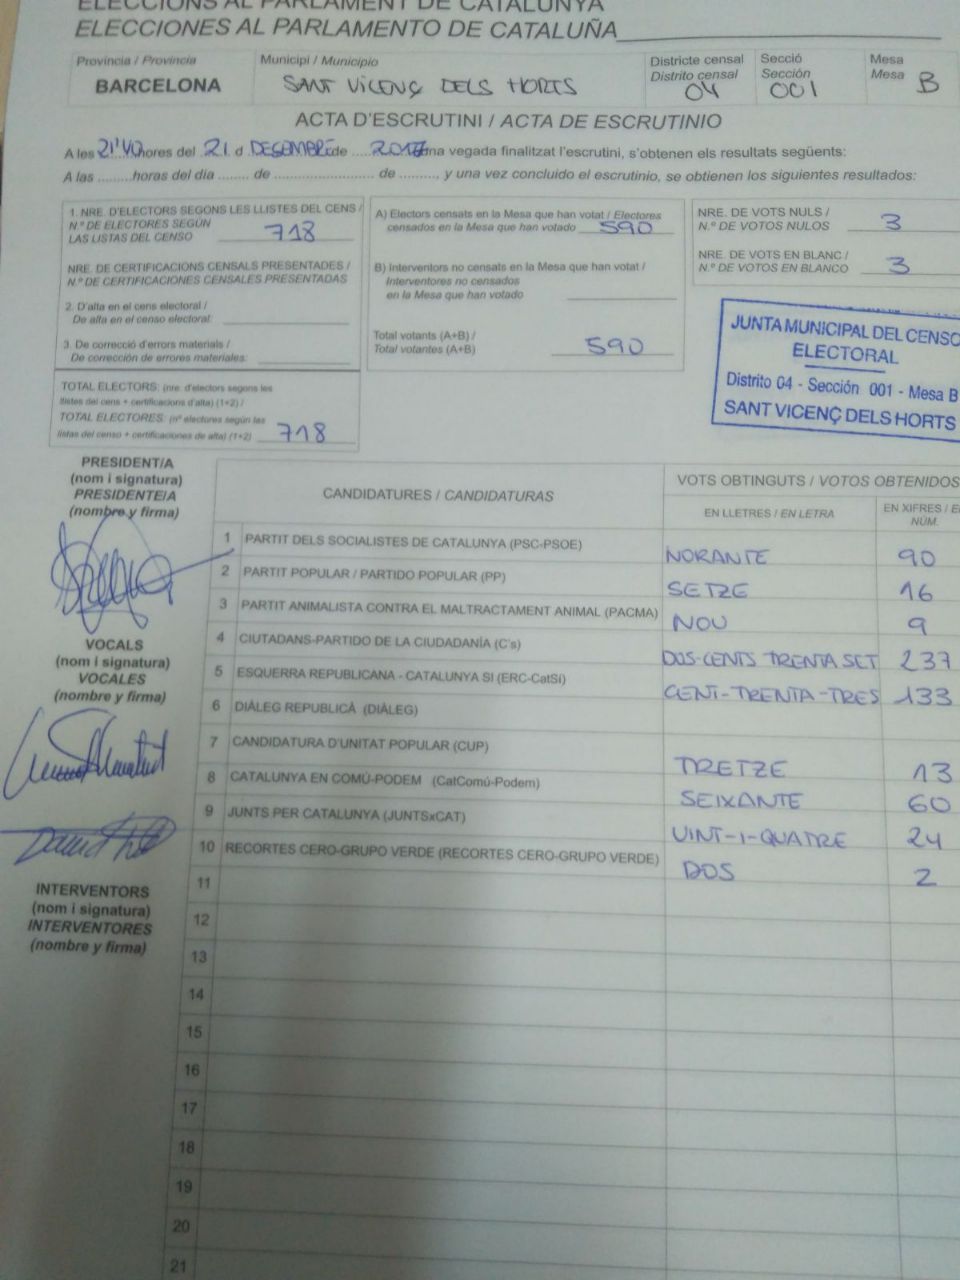 ELECCIONS AL PARLAMENT DE CATALUNYA
ELECCIONES AL PARLAMENTO DE CATALUÑA
Província / Provincia
BARCELONA
Municipi / Municipio
SANT VICENÇ DELS HORTS
Districte censal
Distrito censal
04
Secció
Sección
001
Mesa
Mesa B
ACTA D'ESCRUTINI / ACTA DE ESCRUTINIO
A les 21'40 hores del 21 d DESEMBRE de 2017 una vegada finalitzat l'escrutini, s'obtenen els resultats següents:
A las .........horas del día ........ de .......................... de .........., y una vez concluido el escrutinio, se obtienen los siguientes resultados:
1. NRE. D'ELECTORS SEGONS LES LLISTES DEL CENS /
N.º DE ELECTORES SEGÚN
LAS LISTAS DEL CENSO 718
NRE. DE CERTIFICACIONS CENSALS PRESENTADES /
N.º DE CERTIFICACIONES CENSALES PRESENTADAS
2. D'alta en el cens electoral /
De alta en el censo electoral:
3. De correcció d'errors materials /
De corrección de errores materiales:
TOTAL ELECTORS: (nre. d'electors segons les
llistes del cens + certificacions d'alta) (1+2) /
TOTAL ELECTORES: (nº electores según las
listas del censo + certificaciones de alta) (1+2) 718
A) Electors censats en la Mesa que han votat / Electores
censados en la Mesa que han votado 590
B) Interventors no censats en la Mesa que han votat /
Interventores no censados
en la Mesa que han votado
Total votants (A+B) /
Total votantes (A+B) 590
NRE. DE VOTS NULS /
N.º DE VOTOS NULOS 3
NRE. DE VOTS EN BLANC /
N.º DE VOTOS EN BLANCO 3
JUNTA MUNICIPAL DEL CENSO
ELECTORAL
Distrito 04 - Sección 001 - Mesa B
SANT VICENÇ DELS HORTS
PRESIDENT/A
(nom i signatura)
PRESIDENTE/A
(nombre y firma)
VOCALS
(nom i signatura)
VOCALES
(nombre y firma)
INTERVENTORS
(nom i signatura)
INTERVENTORES
(nombre y firma)
CANDIDATURES / CANDIDATURAS
VOTS OBTINGUTS / VOTOS OBTENIDOS
EN LLETRES / EN LETRA
EN XIFRES / E
NÚM.
1 PARTIT DELS SOCIALISTES DE CATALUNYA (PSC-PSOE) NORANTE 90
2 PARTIT POPULAR / PARTIDO POPULAR (PP) SETZE 16
3 PARTIT ANIMALISTA CONTRA EL MALTRACTAMENT ANIMAL (PACMA) NOU 9
4 CIUTADANS-PARTIDO DE LA CIUDADANÍA (C's) DOS-CENTS TRENTA SET 237
5 ESQUERRA REPUBLICANA - CATALUNYA SI (ERC-CatSí) CENT-TRENTA-TRES 133
6 DIÀLEG REPUBLICÀ (DIÀLEG)
7 CANDIDATURA D'UNITAT POPULAR (CUP) TRETZE 13
8 CATALUNYA EN COMÚ-PODEM (CatComú-Podem) SEIXANTE 60
9 JUNTS PER CATALUNYA (JUNTSxCAT) VINT-I-QUATRE 24
10 RECORTES CERO-GRUPO VERDE (RECORTES CERO-GRUPO VERDE) DOS 2
11
12
13
14
15
16
17
18
19
20
21